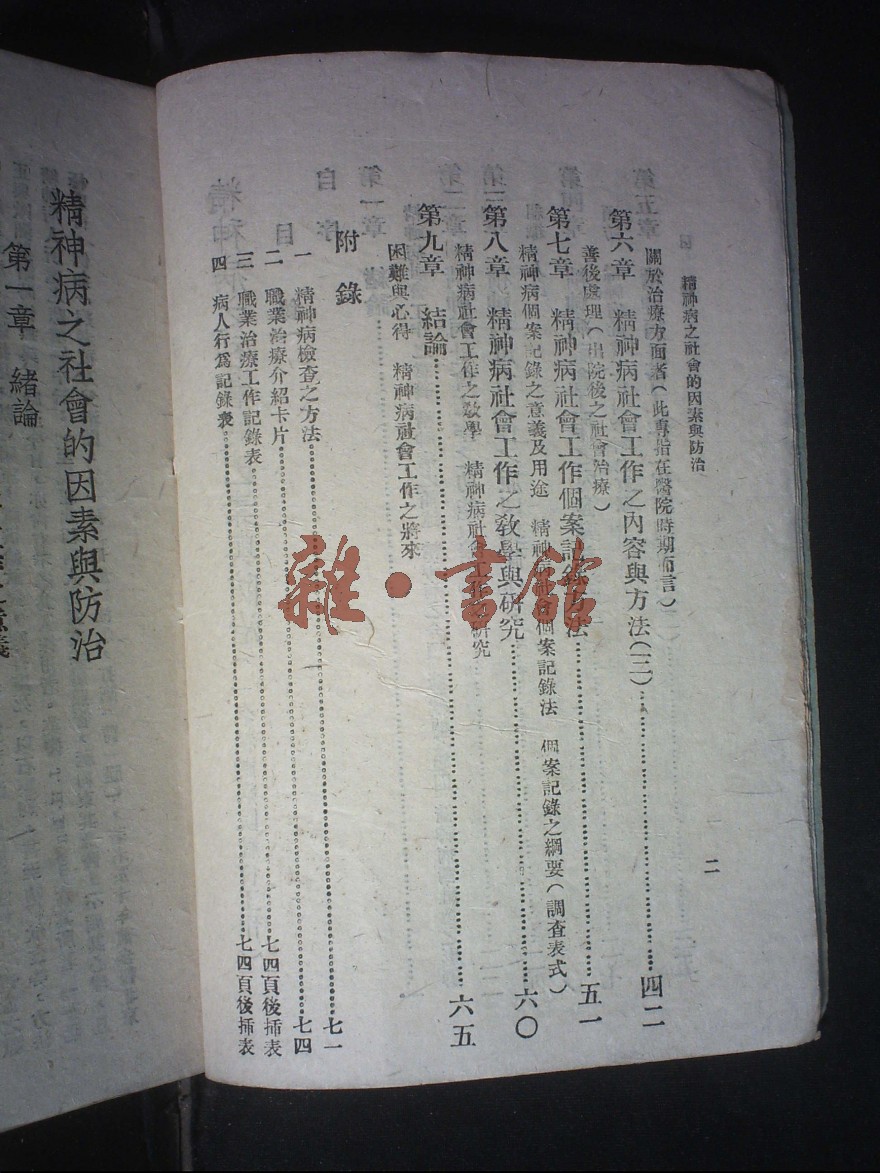 精神病之社會的因素與防治
二
關於治療方面者(此專指在醫院時期而言)
第六章 精神病社會工作之內容與方法(三)……四二
善後處理(出院後之社會治療)
第七章 精神病社會工作個案記錄方法……五一
精神病個案記錄之意義及用途 精神病社會個案記錄法 個案記錄之綱要(調查表式)
第八章 精神病社會工作之教學與研究……六〇
精神病社會工作之教學 精神病社會工作之研究
第九章 結論……六五
困難與心得 精神病社會工作之將來
附錄
一 精神病檢查之方法……七一
二 職業治療介紹卡片……七四
三 職業治療工作記錄表……七四頁後插表
四 病人行為記錄表……七四頁後插表
精神病之社會的因素與防治
第一章 緒論
雜·書館